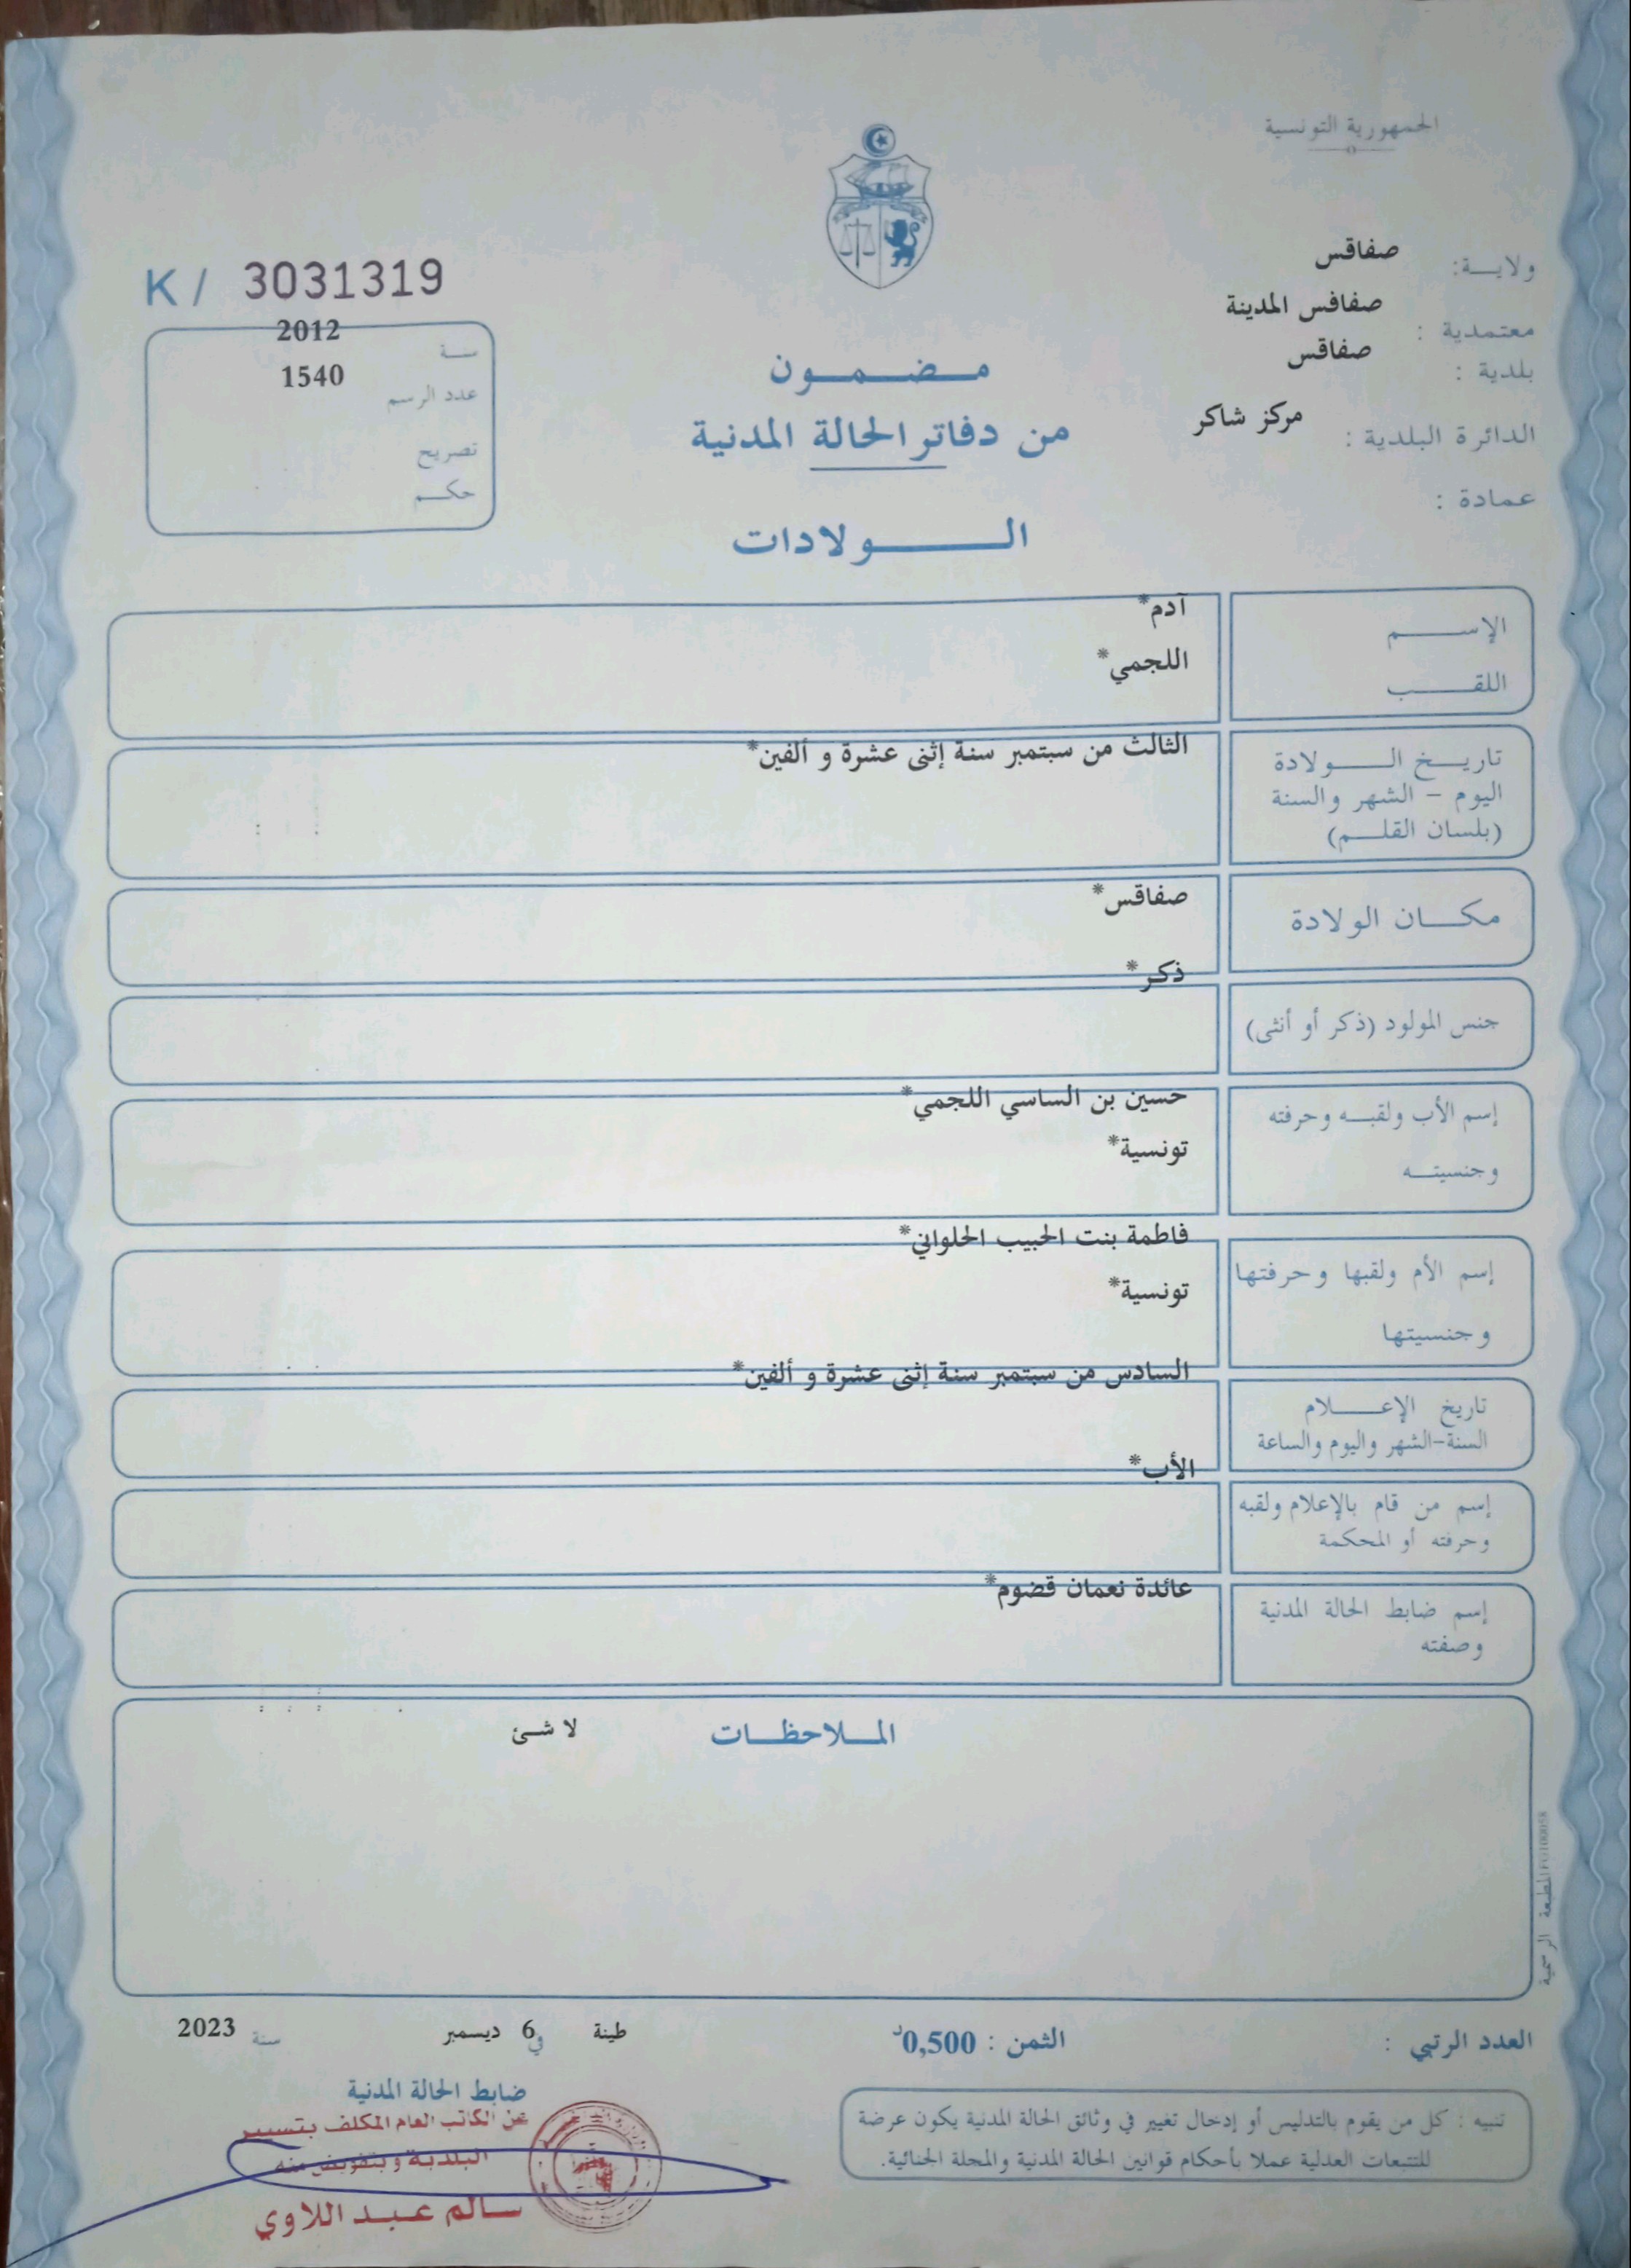 الجمهورية التونسية
ولايـــة: صفاقس
معتمدية : صفافس المدينة
بلدية : صفاقس
الدائرة البلدية : مركز شاكر
عمادة :
K / 3031319
سنـة 2012
عدد الرسم 1540
تصريح
حكـم
مـضـمـون
من دفاتر الحالة المدنية
الـــولادات
الإســـم آدم*
اللقـــب اللجمي*
تاريـخ الـــولادة الثالث من سبتمبر سنة إثنى عشرة و ألفين*
اليوم – الشهر والسنة
(بلسان القلـــم)
مكـــان الولادة صفاقس*
ذكر*
جنس المولود (ذكر أو أنثى)
إسم الأب ولقبـــه وحرفته حسين بن الساسي اللجمي*
وجنسيتـــه تونسية*
فاطمة بنت الحبيب الحلواني*
إسم الأم ولقبها وحرفتها
تونسية*
وجنسيتها
السادس من سبتمبر سنة إثنى عشرة و ألفين*
تاريخ الإعـــلام
السنة-الشهر واليوم والساعة
الأب*
إسم من قام بالإعلام ولقبه
وحرفته أو المحكمة
عائدة نعمان قضوم*
إسم ضابط الحالة المدنية
وصفته
المـلاحظـات لا شئ
المطبعة الرسمية F0100058
العدد الرتبي : الثمن : 0,500د
طينة في 6 ديسمبر سنة 2023
ضابط الحالة المدنية
عن الكاتب العام المكلف بتسيير
البلدية وبتفويض منه
سالم عبد اللاوي
تنبيه : كل من يقوم بالتدليس أو إدخال تغيير في وثائق الحالة المدنية يكون عرضة
للتتبعات العدلية عملا بأحكام قوانين الحالة المدنية والمجلة الجنائية.